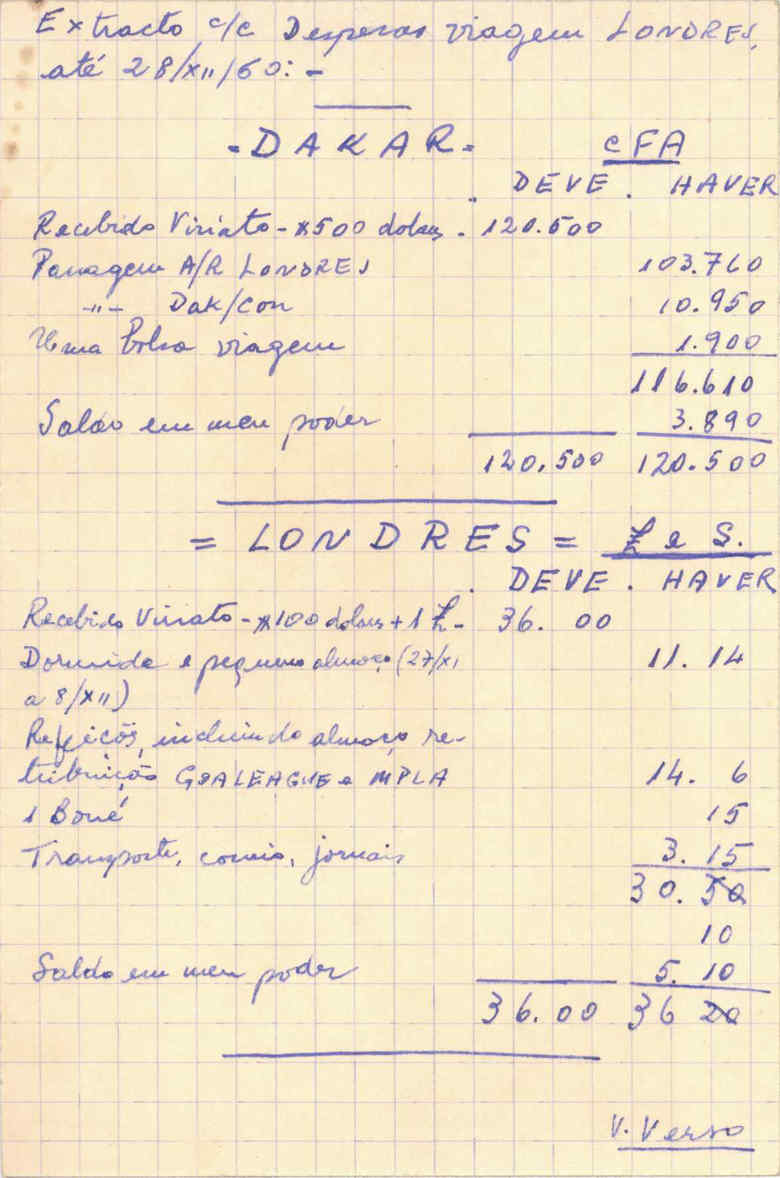 Extracto c/c Despesas viagem LONDRES,
até 28/XII/60: -
- DAKAR - CFA
DEVE . HAVER
Recebido Viriato - 500 dolars . 120.500
Passagem A/R LONDRES 103.760
-"- Dak/Con 10.950
Uma bolsa viagem 1.900
116.610
Saldo em meu poder 3.890
120.500 120.500
= LONDRES = £ e S.
DEVE . HAVER
Recebido Viriato - 100 dolars + 1 £ - 36. 00
Dormida e pequeno almoço (27/XI 11. 14
a 8/XII)
Refeicõs, incluindo almoço re-
tribuição GOALEAGUE e MPLA 14. 6
1 Boné 15
Transporte, correio, jornais 3. 15
30. 50
10
Saldo em meu poder 5. 10
36.00 36 20
V. Verso